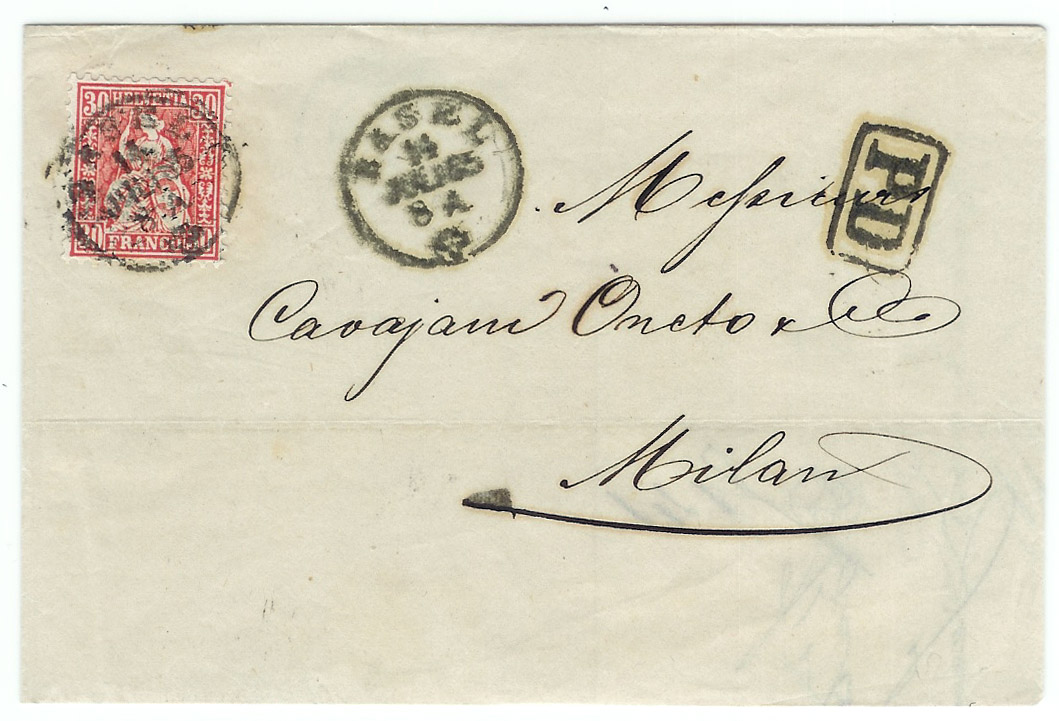 30 HELVETIA 30
FRANCO
BASEL
8 A
PD
Messieurs
Cavajani Oneto & Cie
Milan